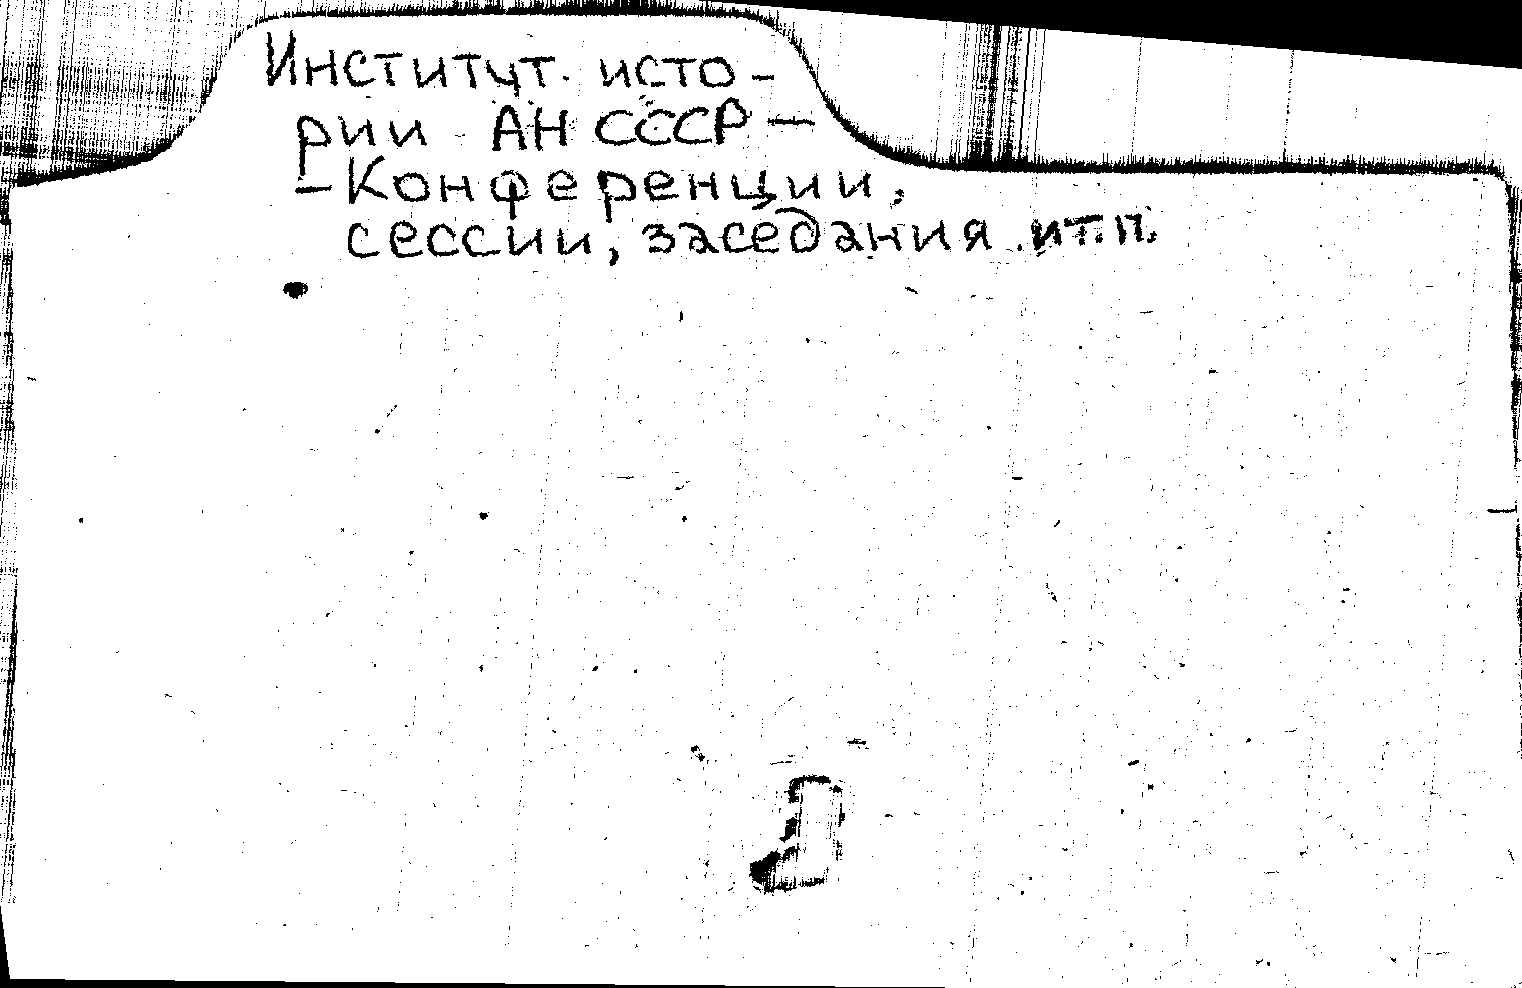 Институт исто-
рии АН СССР —
— Конференции,
сессии, заседания и т.п.